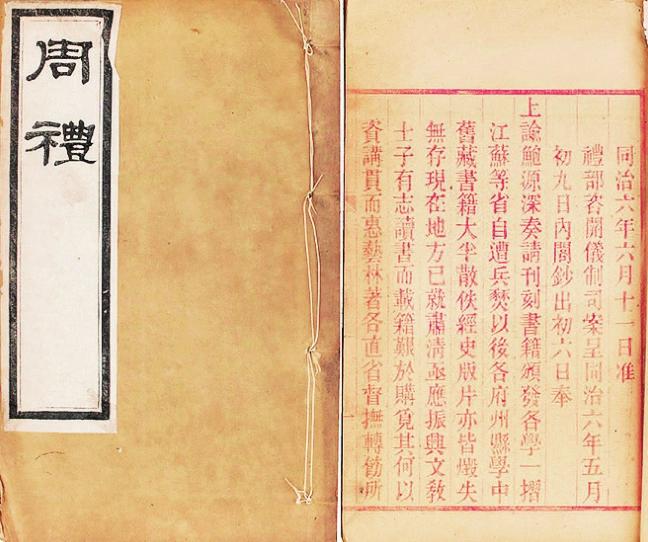 周禮
同治六年六月十一日准
禮部咨開儀制司案呈同治六年五月
初九日內閣鈔出初六日奉
上諭鮑源深奏請刊刻書籍頒發各學一摺
江蘇等省自遭兵燹以後各府州縣學中
舊藏書籍大半散佚經史版片亦皆燬失
無存現在地方已就肅清亟應振興文教
士子有志讀書而載籍艱於購覓其何以
資講貫而惠藝林著各直省督撫轉飭所